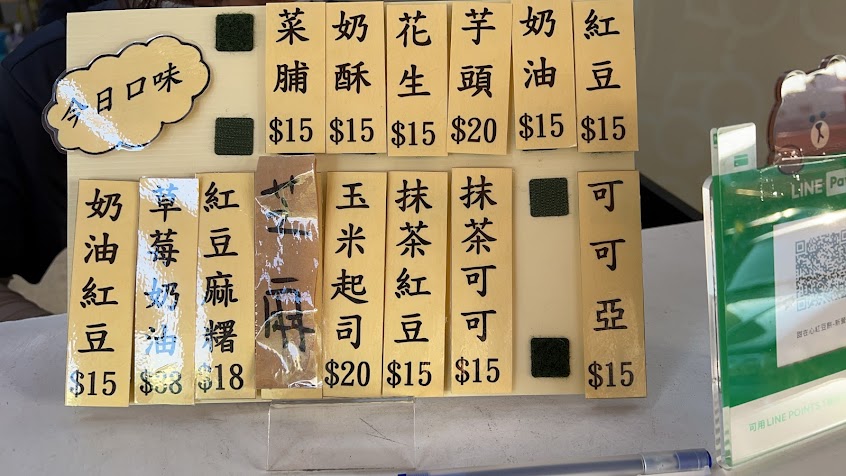 今日口味
菜脯 $15
奶酥 $15
花生 $15
芋頭 $20
奶油 $15
紅豆 $15
奶油紅豆 $15
草莓奶油
紅豆麻糬 $18
芝麻
玉米起司 $20
抹茶紅豆 $15
抹茶可可 $15
可可亞 $15
LINE Pay
可用LINE POINTS